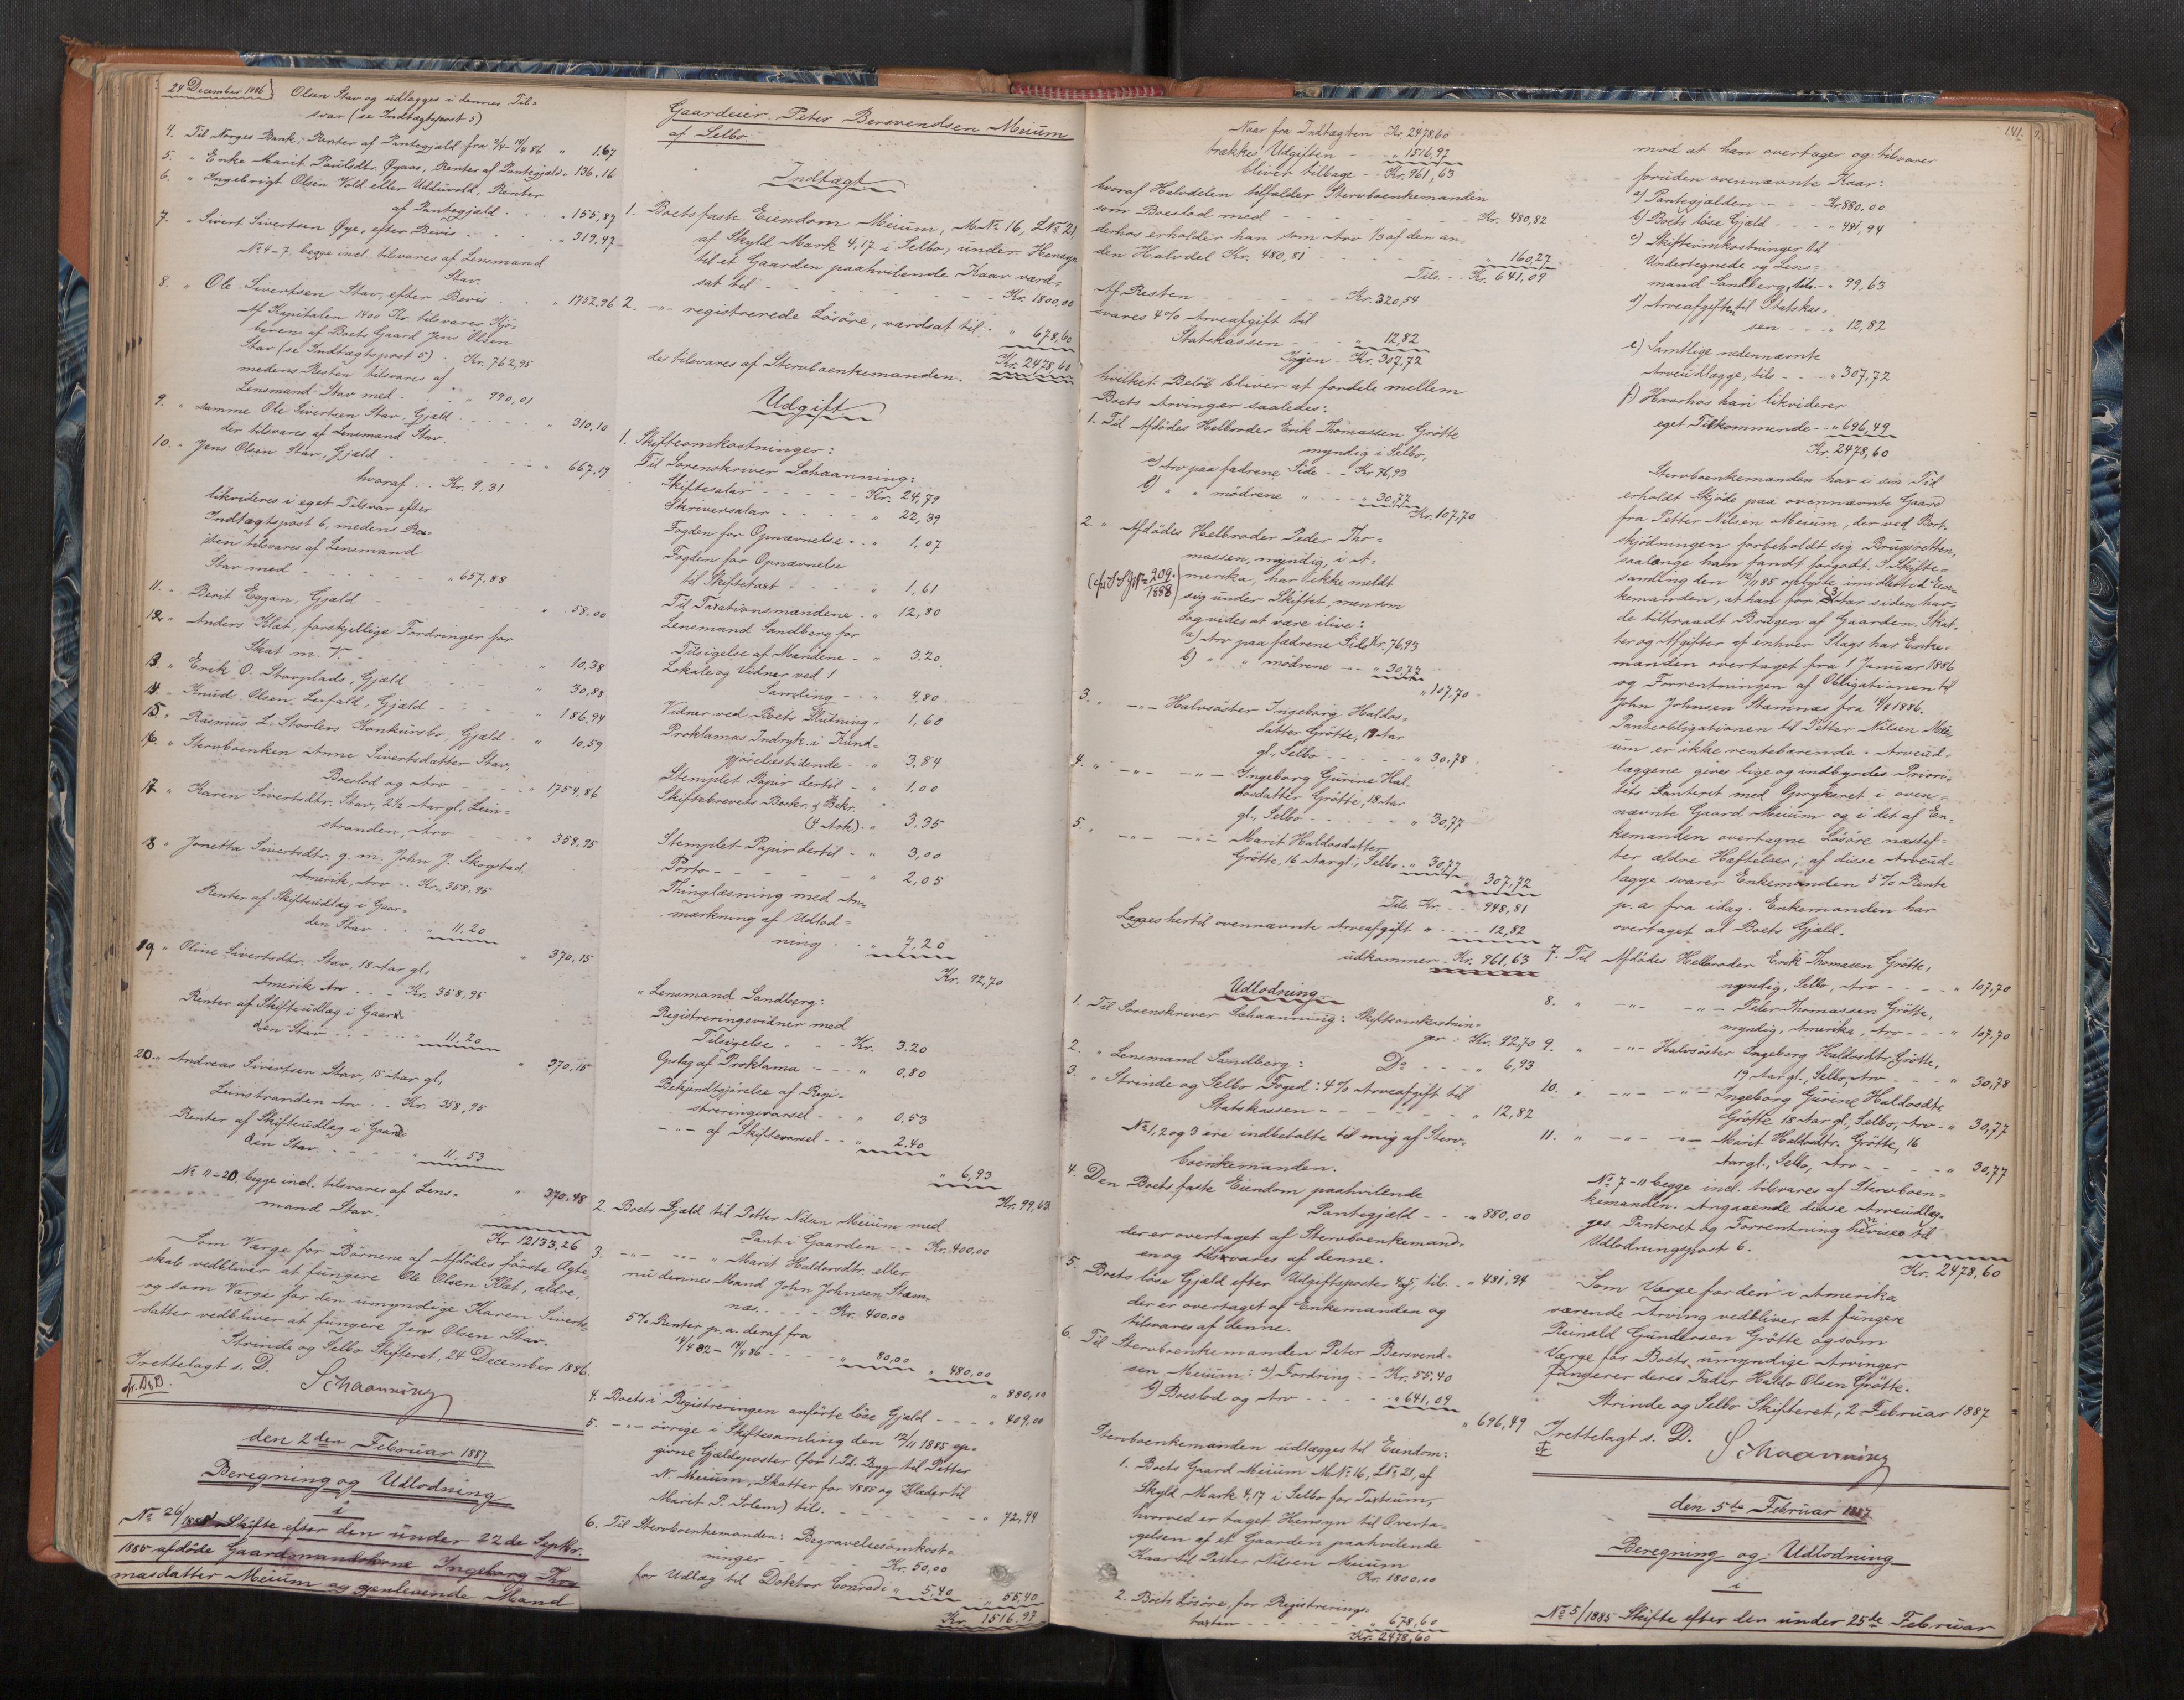 24 December 1886
Olsen Stav og udlægges i dennes Til-
svar (se Indtægtspost 5)
4. Til Norges Bank, Renter af Pantegjæld fra 2/4-14/4 86 " 1.67
5. " Enke Marit Paulsdtr. Øyaas, Renter af Pantegjæld " 136.16
6. " Ingebrigt Olsen Vold eller Udduvold, Renter
af Pantegjæld . . . " 155,87
7. " Sivert Sivertsen Øye, efter Bevis . . . " 319,47
No 4-7 begge incl. tilsvares af Lensmand
Stav.
8. " Ole Sivertsen Stav, efter Bevis . . " 1752,96
Af Kapitalen 1400 Kr. tilsvarer Kjö-
beren af Boets Gaard Jens Olsen
Stav (se Indtægtspost 5) . Kr. 762,95
medens Resten tilsvares af
Lensmand Stav med . . . " 990,01
9. " samme Ole Sivertsen Stav, Gjæld . . . " 310,10
der tilsvares af Lensmand Stav.
10. " Jens Olsen Stav, Gjæld - - - - " 667.19
hvoraf . . Kr. 9,31
likvideres i eget Tilsvar efter
Indtægtspost 6, medens Re-
sten tilsvares af Lensmand
Stav med - - - - - " 657,88
11. " Berit Eggan, Gjæld - - - - " 58,00
12. " Anders Klæt, forskjellige Fordringer for
Skat m. V. - - - - - " 10,38
13. " Erik O. Stavplads, Gjæld - - - - " 30,88
14. " Knud Olsen Lerfald, Gjæld - - - " 186,94
15. " Rasmus L. Storlers Konkursbo, Gjæld - " 10,59
16. " Stervboenken Anne Sivertsdatter Stav,
Boeslod og Arv - - - - " 1754,86
17. " Karen Sivertsdtr. Stav, 21/2 Aar gl., Lein-
stranden, Arv - - - " 358,95
18. " Jonetta Sivertsdtr. g. m. John J. Skogstad,
Amerik, Arv . . Kr. 358,95
Renter af Skifteudlæg i Gaar-
den Stav . . . " 11,20
" 370,15
19. " Oline Sivertsdtr. Stav, 18 Aar gl.,
Amerik Arv . . - Kr. 358,95
Renter af Skifteudlæg i Gaar-
den Stav . . . . " 11,20
" 370,15
20. " Andreas Sivertsen Stav, 15 Aar gl.,
Leinstranden Arv . . Kr. 358,95
Renter af Skifteudlæg i Gaar-
den Stav . . . . " 11,53
" 370,48
No 11-20, begge incl. tilsvares af Lens-
mand Stav.
Kr. 12133,26
Som Værge for Börnene af Afdödes förste Ægte-
skab vedbliver at fungere Ole Olsen Klæt, ældre,
og som Værge for den umyndige Karen Siverts-
datter vedbliver at fungere Jens Olsen Stav.
Strinde og Selbo Skifteret, 24 December 1886.
Irettelagt s. D.
Schaanning
den 2den Februar 1887
Beregning og Udlodning
i
No 26/1885 Skifte efter den under 22de Septbr.
1885 afdöde Gaardmandskone Ingeborg Tho-
masdatter Meium og gjenlevende Mand
Gaardeier Peter Bersvendsen Meium
af Selbo.
Indtægt
1. Boets faste Eiendom Meium, M.No 16, L.No 21,
af Skyld Mark 4,17 i Selbo, under Hensyn
til et Gaarden paahvilende Kaar værd-
sat til - - - - - Kr. 1800,00
2. -"- registrerede Lösöre, værdsat til . " 678,60
der tilsvares af Stervboenkemanden. Kr. 2478,60
Udgift
1. Skifteomkostninger:
Til Sorenskriver Schaanning:
Skiftesalær - - - - Kr. 24,79
Skriversalær - - - - " 22,39
Fogden for Opnævnelse - - " 1,07
Fogden for Opnævnelse
til Skiftetaxt - - - " 1,61
Til Taxationsmændene - " 12,80
Lensmand Sandberg for
Tilsigelse af Mændene - " 3.20
Lokale og Vidner ved 1
Samling - - " 4,80
Vidner ved Boets Slutning - " 1,60
Proklamas Indryk. i Kund-
gjörelsestidende - - " 3,84
Stemplet Papir dertil - " 1,00
Skiftebrevets Beskr. & Bekr.
(4 Ark) - " 3,35
Stemplet Papir dertil - " 3,00
Porto - - - - - - " 2,05
Thinglæsning med An-
mærkning af Udlod-
ning . . " 7,20
Kr. 92,70
" Lensmand Sandberg:
Registreringsvidner med
Tilsigelse - - - Kr. 3.20
Opslag af Proklama - - - " 0,80
Bekjendtgjörelse af Regi-
streringsvarsel - - " 0,53
-"- af Skiftevarsel - - " 2.40
" 6,93
Kr. 99,63
2. Boets Gjæld til Petter Nilsen Meium med
Pant i Gaarden - - Kr. 400,00
3. -"- -"- " Marit Haldorsdtr. eller
nu dennes Mand John Johnsen Stam-
næs. - - - - Kr. 400,00
5% Renter p. a. deraf fra
14/4 82 - 14/4 86 - - - - " 80,00
" 480,00
" 880,00
4. Boets i Registreringen anförte löse Gjæld - - - " 409,00
5. -"- övrige i Skiftesamling den 12/11 1885 op-
givne Gjældsposter (for 1 Td. Byg til Petter
N. Meium, Skatter for 1885 og Klæder til
Marit P. Solem) tils. - - - - - " 72,94
6. Til Stervboenkemanden: Begravelsesomkost-
ninger - - - - Kr. 50,00
for Udlæg til Doktor Conradi " 5,40
" 55,40
Kr. 1516,97
Naar fra Indtægten Kr. 2478,60
trækkes Udgiften - - - " 1516,97
bliver tilbage - - Kr. 961,63
hvoraf Halvdelen tilfalder Stervboenkemanden
som Boeslod med - - - - - Kr. 480,82
derhos erholder han som Arv 1/3 af den an-
den Halvdel Kr. 480,81 - - - - " 160,27
Tils. - - Kr. 641,09
Af Resten - - - - - Kr. 320,54
svares 4% Arveafgift til
Statskassen - - - - " 12,82
Igjen - Kr. 307,72
hvilket Belöb bliver at fordele mellem
Boets Arvinger saaledes:
1. Til Afdödes Helbroder Erik Thomassen Grötte
myndig i Selbo,
a) Arv paa fædrene Side - - Kr 76,93
b) " " mödrene " - - - - " 30,77
Kr. 107,70
2. " Afdödes Helbroder Peder Tho-
massen, myndig, i A-
merika, har ikke meldt
209
1888
sig under Skiftet, men som
dog vides at være ilive:
a) Arv paa fædrene Side Kr. 76,93
b) " " mödrene -"- " 30,77
" 107,70
3. " -"- Halvsöster Ingeborg Haldos-
datter Grötte, 19 Aar
gl., Selbo - - - - " 30,78
4. " -"- -"- Ingeborg Gurine Hal-
dosdatter Grötte, 18 Aar
gl., Selbo - - - - - " 30,77
5. " -"- -"- Marit Haldosdatter
Grötte, 16 Aar gl., Selbo " 30,77
" 307,72
Tils. Kr. - - - 948,81
Lægges hertil ovennævnte Arveafgift " - - - - 12,82
udkommer - Kr. 961,63
Udlodning
1. Til Sorenskriver Schaanning: Skifteomkostnin-
ger : Kr. 92,70
2. " Lensmand Sandberg: Do - - - - " 6,93
3. " Strinde og Selbo Foged: 4% Arveafgift til
Statskassen - - - - - - " 12,82
No 1, 2 og 3 ere indbetalte til mig af Sterv-
boenkemanden.
4. Den Boets faste Eiendom paahvilende
Pantegjæld - - - " 880,00
der er overtaget af Stervboenkemand-
en og tilsvares af denne.
5. Boets löse Gjæld efter Udgiftsposter 4 & 5, tils. - " 481,94
der er overtaget af Enkemanden og
tilsvares af denne.
6. Til Stervboenkemanden Peter Bersvend-
sen Meium: a) Fordring - - Kr. 55.40
b) Boeslod og Arv - - - - " 641,09
" 696,49
Stervboenkemanden udlægges til Eiendom:
1. Boets Gaard Meium M.No 16, L.No 21, af
Skyld Mark 4,17 i Selbo for Taxtsum,
hvorved er taget Hensyn til Overta-
gelsen af et Gaarden paahvilende
Kaar til Petter Nilsen Meium
Kr. 1800,00
2. Boets Lösöre, for Registrerings-
taxten - - - - - - " 678,60
Kr. 2478,60
141.
mod at han overtager og tilsvarer
foruden ovennævnte Kaar:
a) Pantegjælden - - - Kr. 880,00
b) Boets löse Gjæld - - - - " 481,94
c) Skifteomkostninger til
Undertegnede og Lens-
mand Sandberg, tils. - " 99,63
d) Arveafgiften til Statskas-
sen - - - " 12,82
e) Samtlige nedennævnte
Arveudlægge, tils - - - " 307,72
f) Hvorhos han likviderer
eget Tilkommende - - " 696,49
Kr. 2478,60
Stervboenkemanden har i sin Tid
erholdt Skjöde paa ovennævnte Gaard
fra Petter Nilsen Meium, der ved Bort-
skjödningen forbeholdt sig Brugsretten,
saalænge han fandt forgodt. I Skifte-
samling den 12/11 85 oplyste imidlertid Een-
kemanden, at han for 3 Aar siden hav-
de tiltraadt Brugen af Gaarden. Skat-
ter og Afgifter af enhver Slags har Enke-
manden overtaget fra 1 Januar 1886
og Forrentningen af Obligationen til
John Johnsen Stamnæs fra 14/4 1886.
Panteobligationen til Petter Nilsen Mei-
um er ikke rentebærende. Arveud-
læggene gives lige og indbyrdes Priori-
tets Panteret med Oprykret i oven-
nævnte Gaard Meium og i det af En-
kemanden overtagne Lösöre næstef-
ter ældre Hæftelser; af disse Arveud-
lægge svarer Enkemanden 5% Rente
p. a fra idag. Enkemanden har
overtaget al Boets Gjæld.
7. Til Afdödes Helbroder Erik Thomasen Grötte,
myndig, Selbo, Arv - - - - " 107,70
8. " -"- -"- Peder Thomassen Grötte,
myndig, Amerika, Arv - - - " 107,70
9. " -"- Halvsöster Ingeborg Haldosdtr. Grötte,
19 Aar gl., Selbo, Arv - - - " 30,78
10. " -"- -"- Ingeborg Gurine Haldosdtr.
Grötte 18 Aar gl., Selbo, Arv - " 30,77
11. " -"- -"- Marit Haldosdtr. Grötte, 16
Aar gl., Selbo, Arv - - - - " 30,77
No 7-11 begge incl. tilsvares af Stervboen-
kemanden. Angaaende disse Arveudlæg-
ges Panteret og Forrentning henvises til
Udlodningspost 6.
Kr. 2478,60
Som Værge for den i Amerika
værende Arving vedbliver at fungere
Reinald Gundersen Grötte og som
Værge for Boets umyndige Arvinger
fungerer deres Fader Haldo Olsen Grötte.
Strinde og Selbo Skifteret, 2 Februar 1887
Irettelagt s. D.
Schaanning
den 5te Februar 1887
Beregning og Udlodning
i
No 5/1885 Skifte efter den under 25de Februar